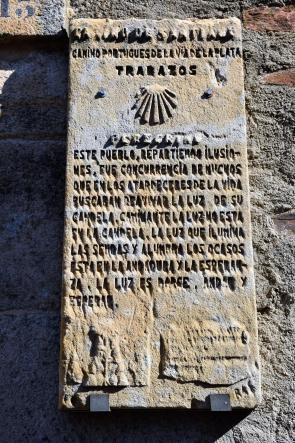 CAMINO PORTUGUES DE LA VIA DE LA PLATA
TRABAZOS
ESTE PUEBLO, REPARTIENDO ILUSIO-
NES, FUE CONCURRENCIA DE MUCHOS
QUE EN LOS ATARDECERES DE LA VIDA
BUSCABAN REAVIVAR LA LUZ DE SU
CANDELA. CAMINANTE LA LUZ NO ESTA
EN LA CANDELA, LA LUZ QUE ILUMINA
LAS SENDAS Y ALUMBRA LOS OCASOS
ESTA EN LA ANDADURA Y LA ESPERAN-
ZA, LA LUZ ES DARSE, ANDAR Y
ESPERAR.